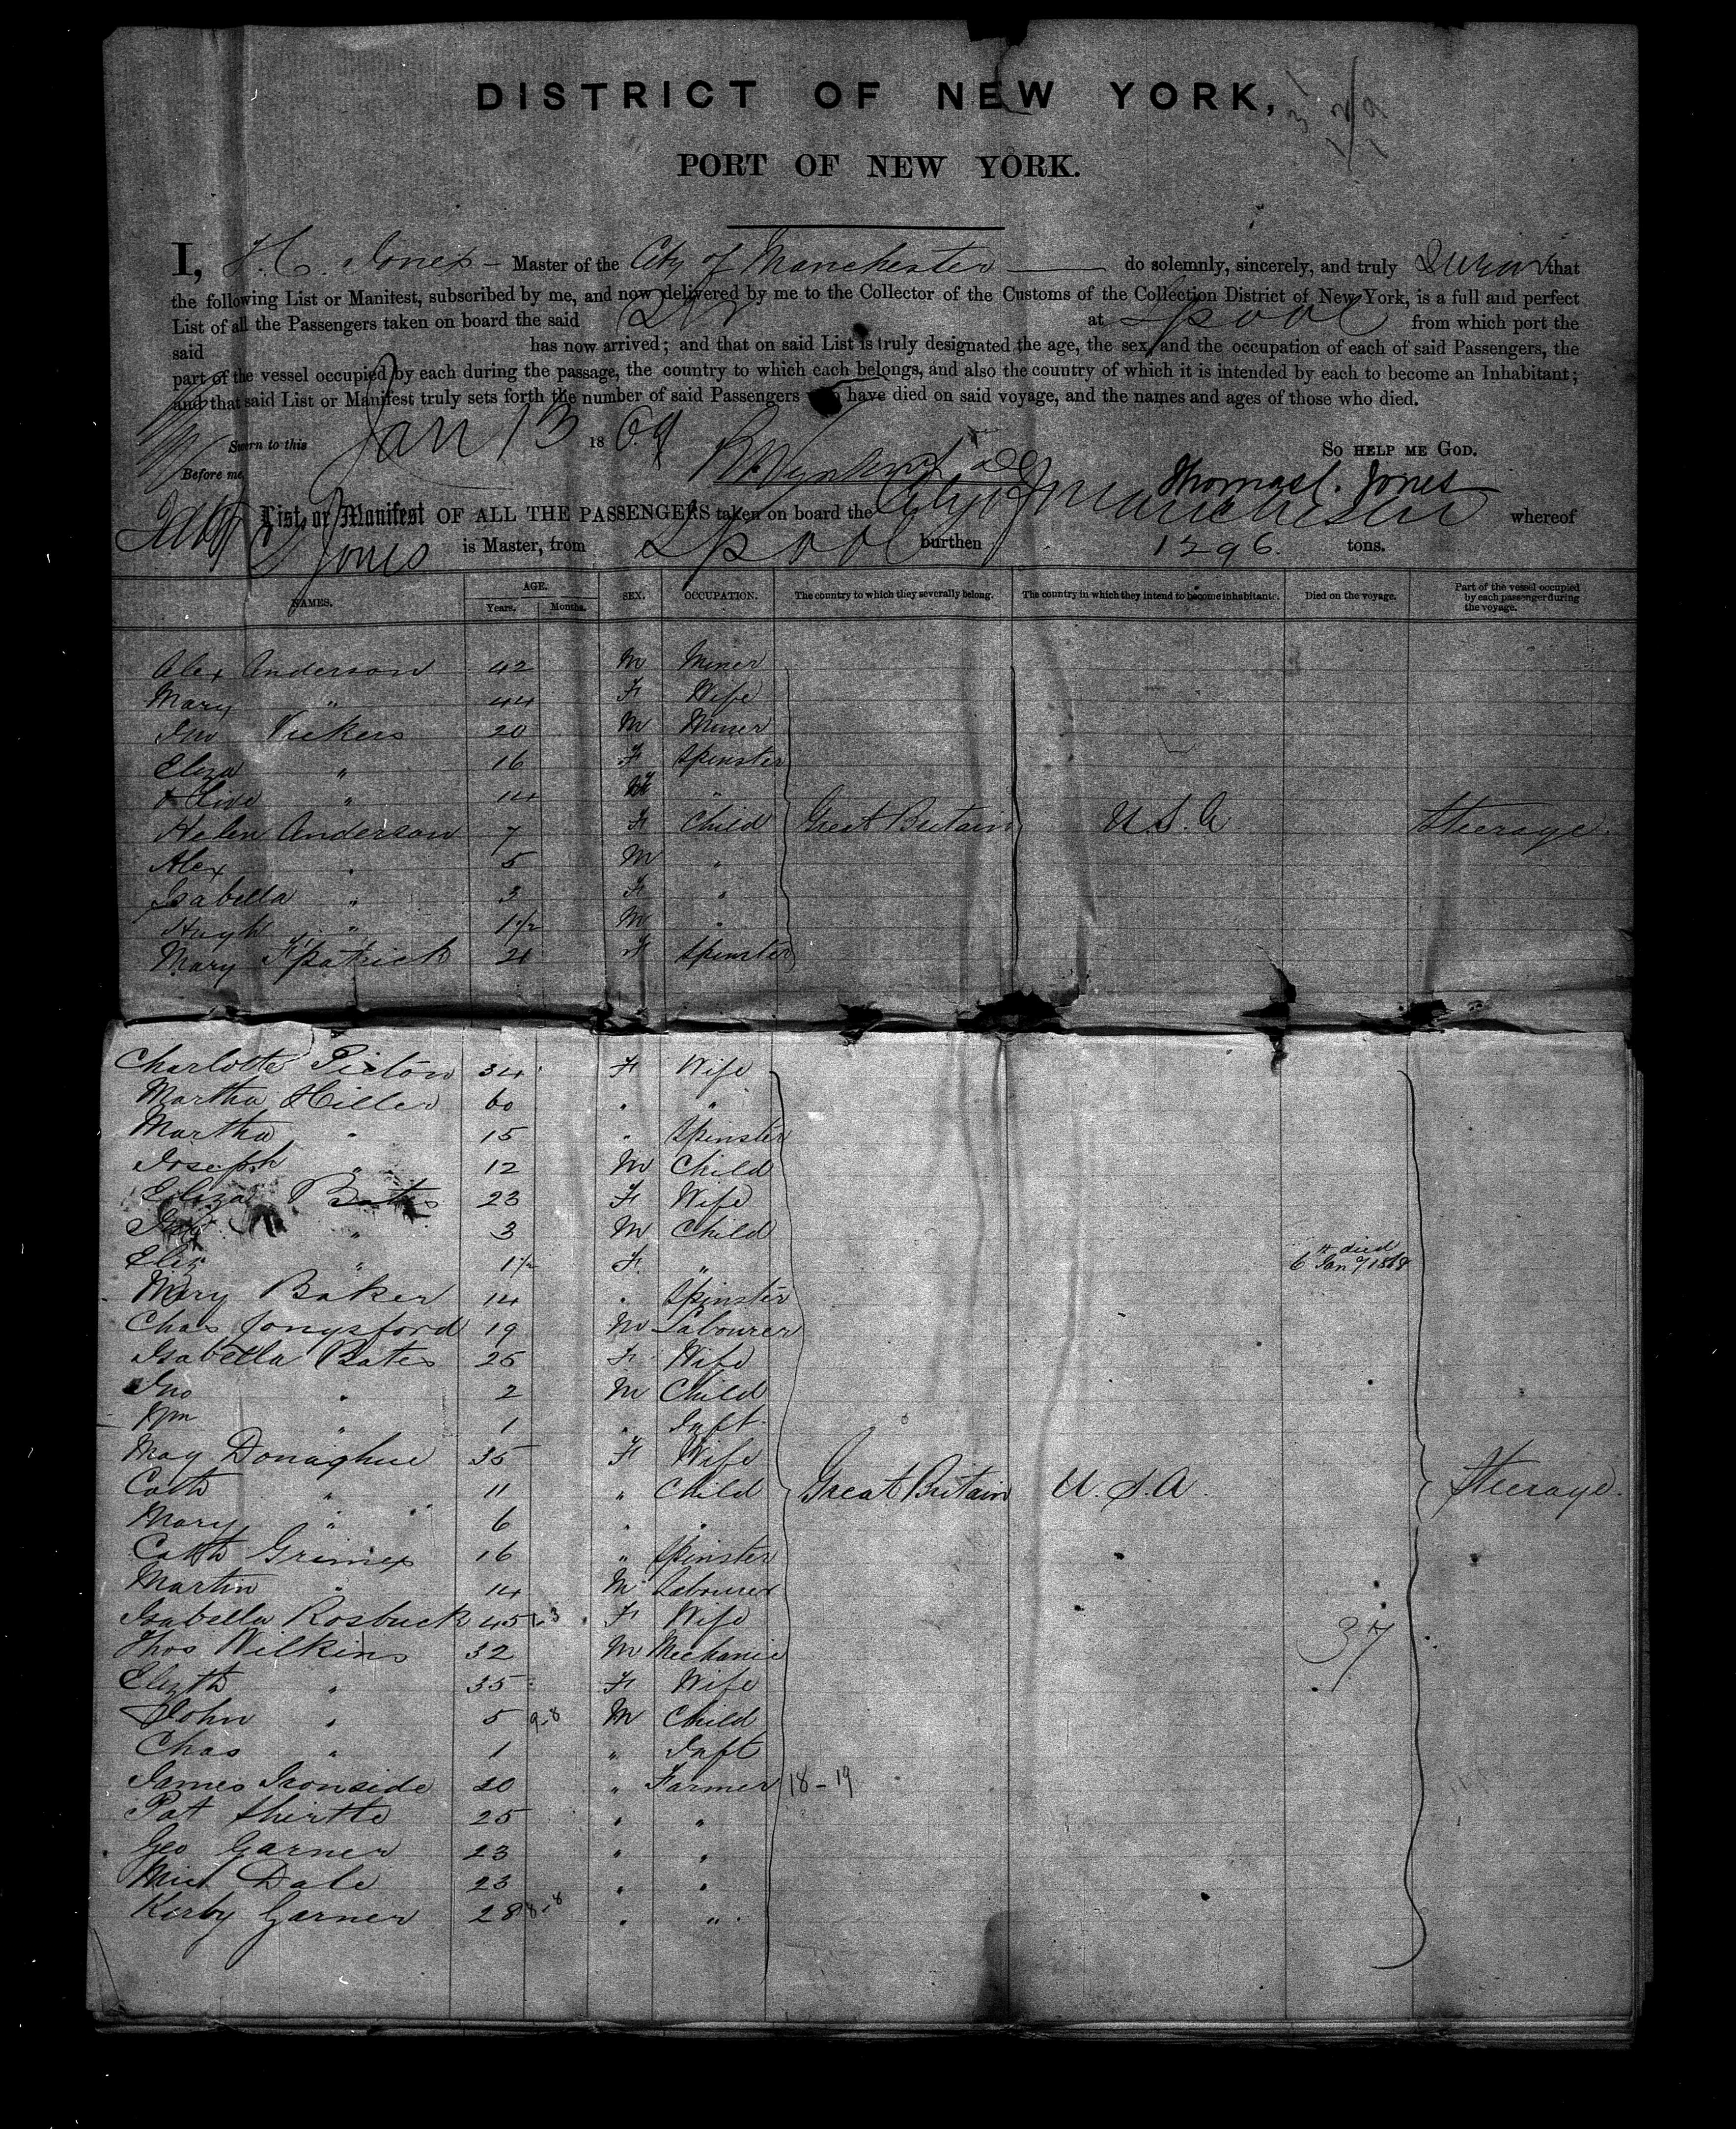 DISTRICT OF NEW YORK,
PORT OF NEW YORK.
I, H. C. Jones — Master of the City of Manchester — do solemnly, sincerely, and truly Swear that
the following List or Manifest, subscribed by me, and now delivered by me to the Collector of the Customs of the Collection District of New York, is a full and perfect
List of all the Passengers taken on board the said at Lpool from which port the
said has now arrived; and that on said List is truly designated the age, the sex, and the occupation of each of said Passengers, the
part of the vessel occupied by each during the passage, the country to which each belongs, and also the country of which it is intended by each to become an Inhabitant;
and that said List or Manifest truly sets forth the number of said Passengers have died on said voyage, and the names and ages of those who died.
Sworn to this Jan 13 1869
So HELP ME GOD.
Before me,
Thomas C. Jones
List or Manifest OF ALL THE PASSENGERS taken on board the City of Manchester whereof
Jones is Master, from Lpool burthen 1296 tons.
NAMES. AGE. Years. Months. SEX. OCCUPATION. The country to which they severally belong. The country in which they intend to become inhabitants. Died on the voyage. Part of the vessel occupied by each passenger during the voyage.
Alex Anderson 42 M Miner
Mary " 44 F Wife
Jno Vickers 20 M Miner
Eliza " 16 F Spinster
" 14 "
Helen Anderson 7 F Child Great Britain U.S.A. Steerage.
Alex " 5 M "
Isabella " 3 F "
Hugh " 1 1/2 M "
Mary Fpatrick 21 F Spinster
Charlotte Picton 34 F Wife
Martha Hiller 60 " "
Martha " 15 " Spinster
Joseph " 12 M Child
Eliza Bates 23 F Wife
" 3 M Child
Eliz " 1 1/2 F " died 6 Jany
Mary Baker 14 " Spinster
Chas Jongsford 19 M Labourer
Isabella Bates 25 F Wife
Jno " 2 M Child
Wm " 1 " Inft
May Donaghue 35 F Wife
Cath " 11 " Child Great Britain U.S.A. Steerage.
Mary " 6 " "
Cath Grimes 16 " Spinster
Martin " 14 M Labourer
Isabella Rosbuck 45 F Wife
Thos Wilkins 32 M Mechanic 37
Elizth " 35 F Wife
John " 5 9-8 M Child
Chas " 1 " Inft
James Ironside 20 " Farmer 18-19
Pat 25 " "
Geo Garner 23 " "
Mich Dale 23 " "
Kerby Garner 28 8-8 " "